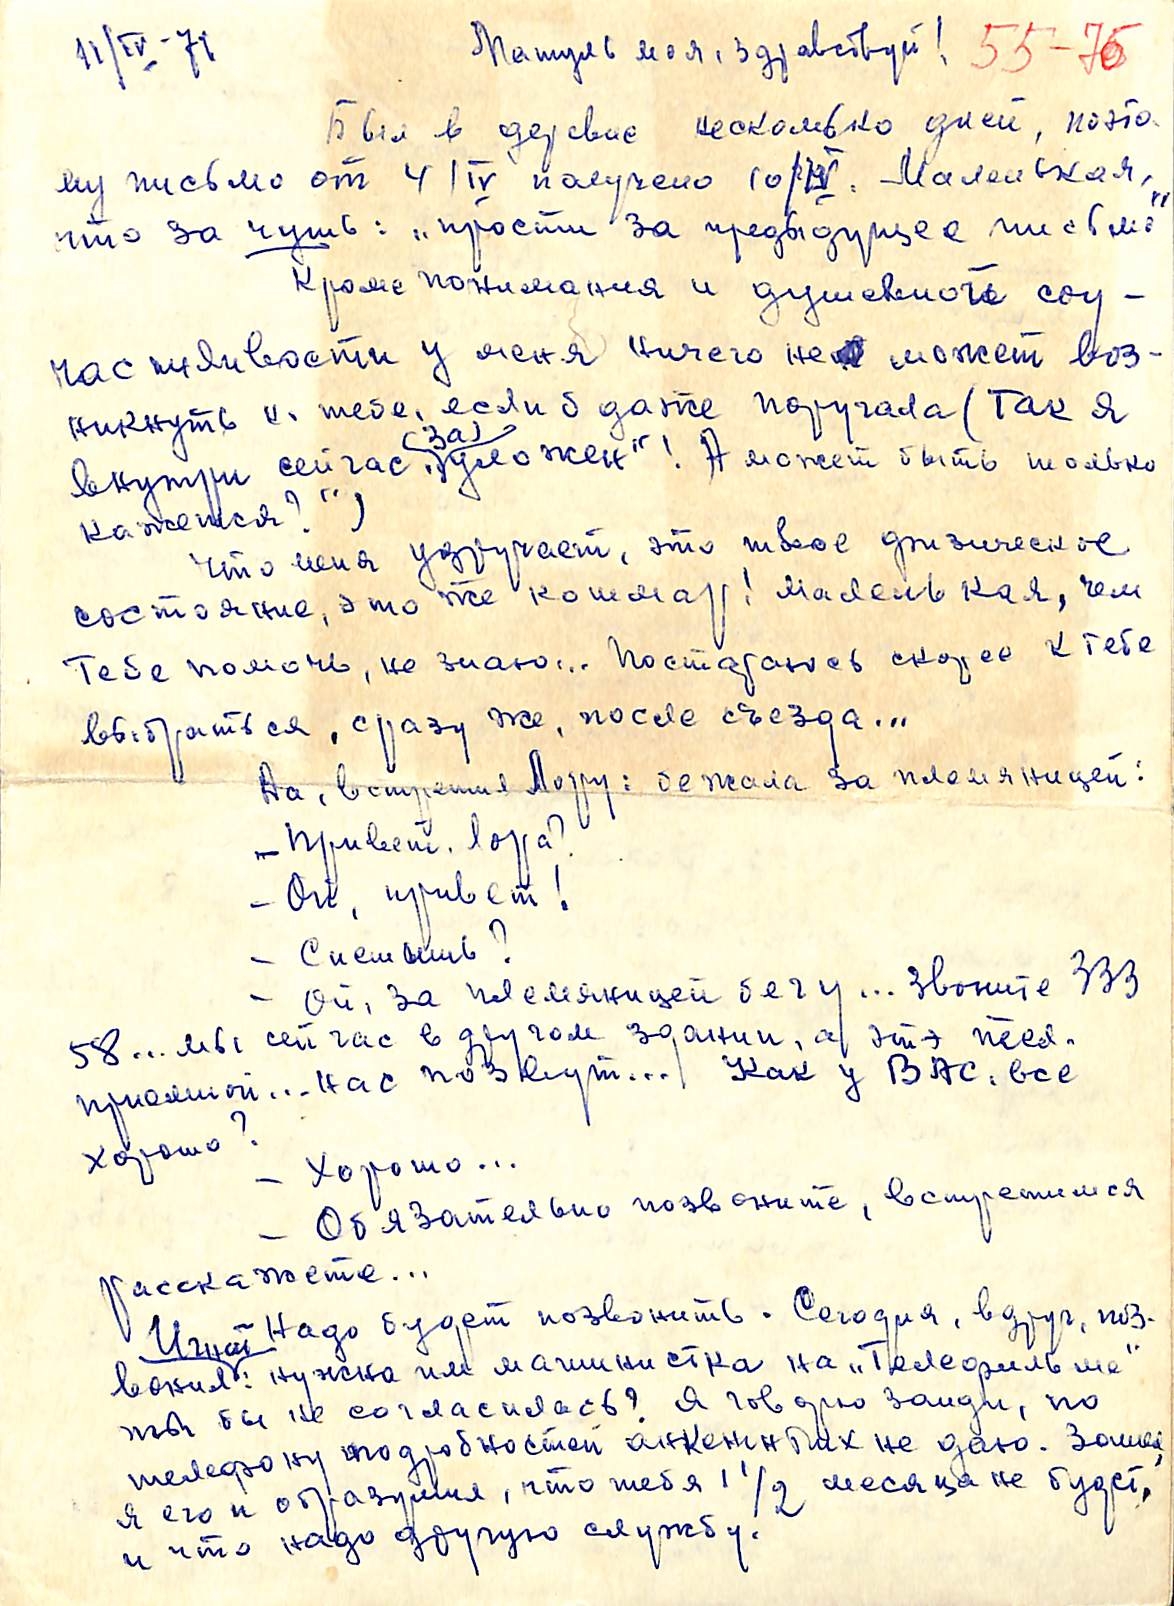 11/IV-71 Матуль моя, здравствуй! 55-76
Был в деревне несколько дней, поэто-
му письмо от 4/IV получено 10/IV. Маленькая,
что за чушь: „прости за предыдущее письмо"
Кроме понимания и душевной соу-
частливости у меня ничего не может воз-
никнуть к тебе, если б даже поручала (Так я
(за)
внутри сейчас „уложен"! А может быть только
кажется?")
Что меня удручает, это твое физическое
состояние, это же кошмар! Маленькая, чем
Тебе помочь, не знаю... Постараюсь скорее к Тебе
выбраться, сразу же, после съезда...
Да, встретил Лору: бежала за племянницей:
- Привет, Лора?
- Ой, привет!
- Спешишь?
- Ой, за племянницей бегу... Звоните 333
58... мы сейчас в другом здании, а это тел.
приемной... Нас позовут... Как у ВАС, все
хорошо?
- Хорошо...
- Обязательно позвоните, встретимся
Расскажете...
Надо будет позвонить. Сегодня, вдруг, поз-
вонил Игнат: нужна им машинистка на „Телефильме"
ты бы не согласилась? Я говорю зайди, по
телефону подробностей анкетных не даю. Зашел,
я его и образумил, что тебя 1 1/2 месяца не будет,
и что надо другую службу.